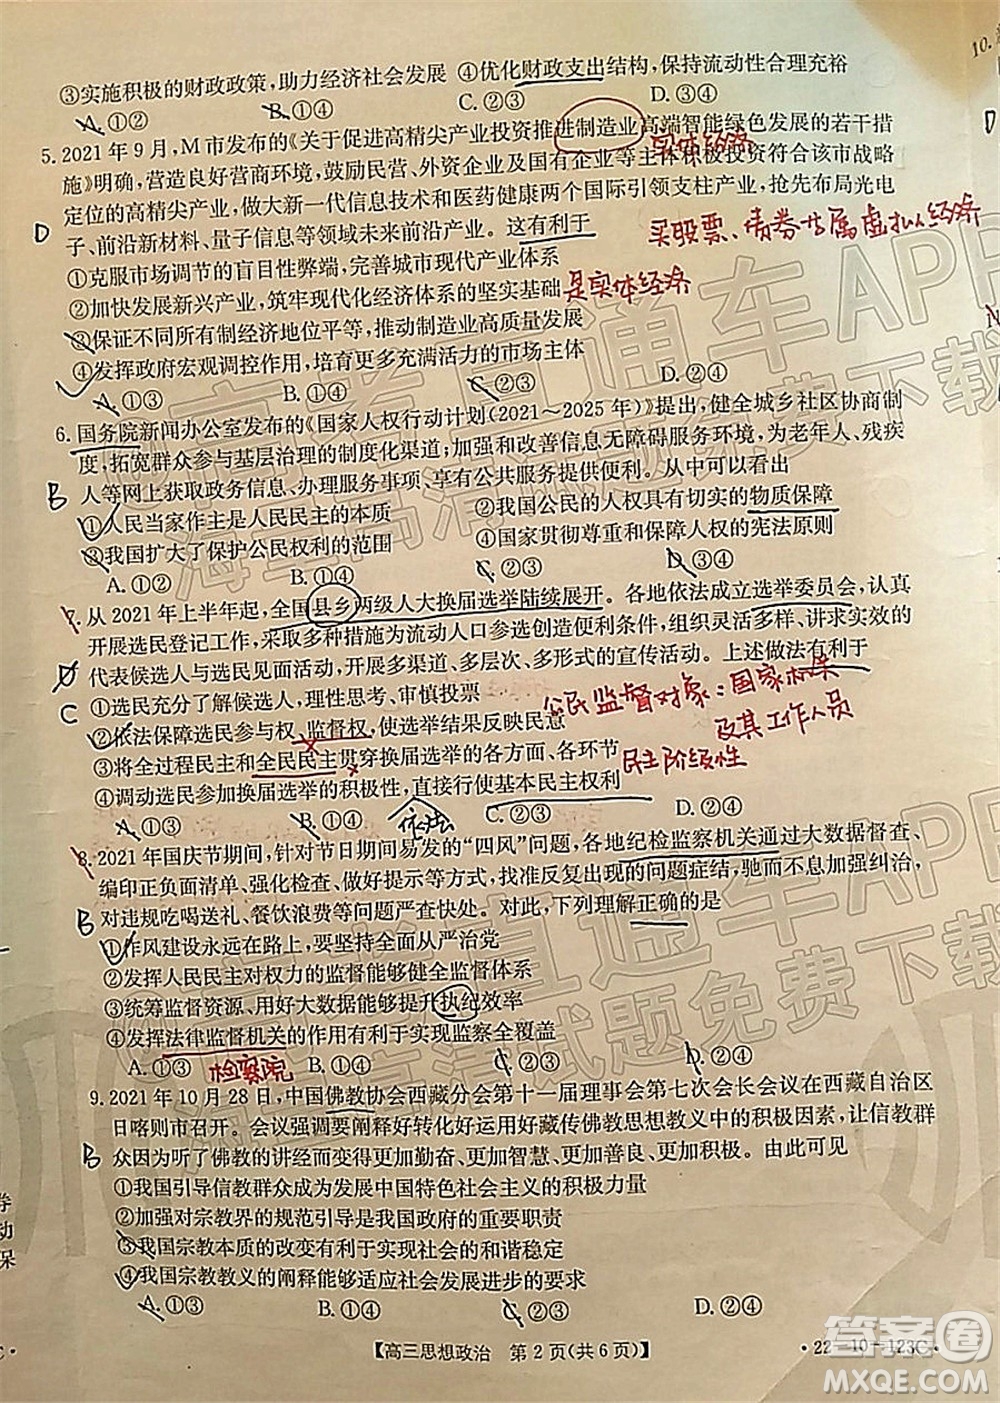 ③实施积极的财政政策，助力经济社会发展 ④优化财政支出结构，保持流动性合理充裕
A.①② B.①④ C.②③ D.③④
5.2021年9月，M市发布的《关于促进高精尖产业投资推进制造业高端智能绿色发展的若干措
实体经济
施》明确，营造良好营商环境，鼓励民营、外资企业及国有企业等主体积极投资符合该市战略
定位的高精尖产业，做大新一代信息技术和医药健康两个国际引领支柱产业，抢先布局光电
D 子、前沿新材料、量子信息等领域未来前沿产业。这有利于
买股票、债券等属虚拟经济
①克服市场调节的盲目性弊端，完善城市现代产业体系
②加快发展新兴产业，筑牢现代化经济体系的坚实基础 是实体经济
③保证不同所有制经济地位平等，推动制造业高质量发展
④发挥政府宏观调控作用，培育更多充满活力的市场主体
A.①③ B.①④ C.②③ D.②④
6.国务院新闻办公室发布的《国家人权行动计划（2021～2025年）》提出，健全城乡社区协商制
度，拓宽群众参与基层治理的制度化渠道；加强和改善信息无障碍服务环境，为老年人、残疾
B 人等网上获取政务信息、办理服务事项、享有公共服务提供便利。从中可以看出
①人民当家作主是人民民主的本质 ②我国公民的人权具有切实的物质保障
③我国扩大了保护公民权利的范围 ④国家尊重和保障人权的宪法原则
A.①② B.①④ C.②③ D.③④
7.从2021年上半年起，全国县乡两级人大换届选举陆续展开。各地依法成立选举委员会，
开展选民登记工作，采取多种措施为流动人口参选创造便利条件，组织灵活多样、讲求实效的
D 代表候选人与选民见面活动，开展多渠道、多层次、多形式的宣传活动。上述做法有利于
C ①选民充分了解候选人，理性思考、审慎投票
公民监督对象：国家机关
及其工作人员
②依法保障选民参与权、监督权，使选举结果反映民意
③将全过程民主和全民民主贯穿换届选举的各方面、各环节 民主阶级性
④调动选民参加换届选举的积极性，直接行使基本民主权利
A.①③ B.①④ C.②③ D.②④
依法
8.2021年国庆节期间，针对节日期间易发的“四风”问题，各地纪检监察机关通过大数据督查、
编印正负面清单、强化检查、做好提示等方式，找准反复出现的问题症结，精准施策纠治，
B 对违规吃喝送礼、餐饮浪费等问题严查快处。对此，下列理解正确的是
①作风建设永远在路上，要全面从严治党
②发挥人民民主对权力的监督作用能够健全监督体系
③统筹监督资源、用好大数据能够提升执纪效率
④发挥法律监督机关的作用有利于实现监察全覆盖
检察院
A.①③ B.①④ C.②③ D.②④
9.2021年10月28日，中国佛教协会西藏分会第十一届理事会第七次会长会议在西藏自治区
日喀则市召开。会议强调要阐释好转化好运用好藏传佛教思想教义中的积极因素，让信教群
B 众因为听了佛教的讲经而变得更加勤奋、更加智慧、更加善良、更加积极。由此可见
①我国引导信教群众成为发展中国特色社会主义的积极力量
②加强对宗教界的规范引导是我国政府的重要职责
③我国宗教本质的改变有利于实现社会的和谐稳定
④我国宗教教义的阐释能够适应社会发展进步的要求
A.①③ B.①④ C.②③ D.②④
【高三思想政治 第2页(共6页)】
·22-10-123C·
10.
D
N
券
动
保
高考直通车APP
海量高清试题免费下载
高考直通车APP
海量高清试题免费下载
答案圈
MXQE.COM